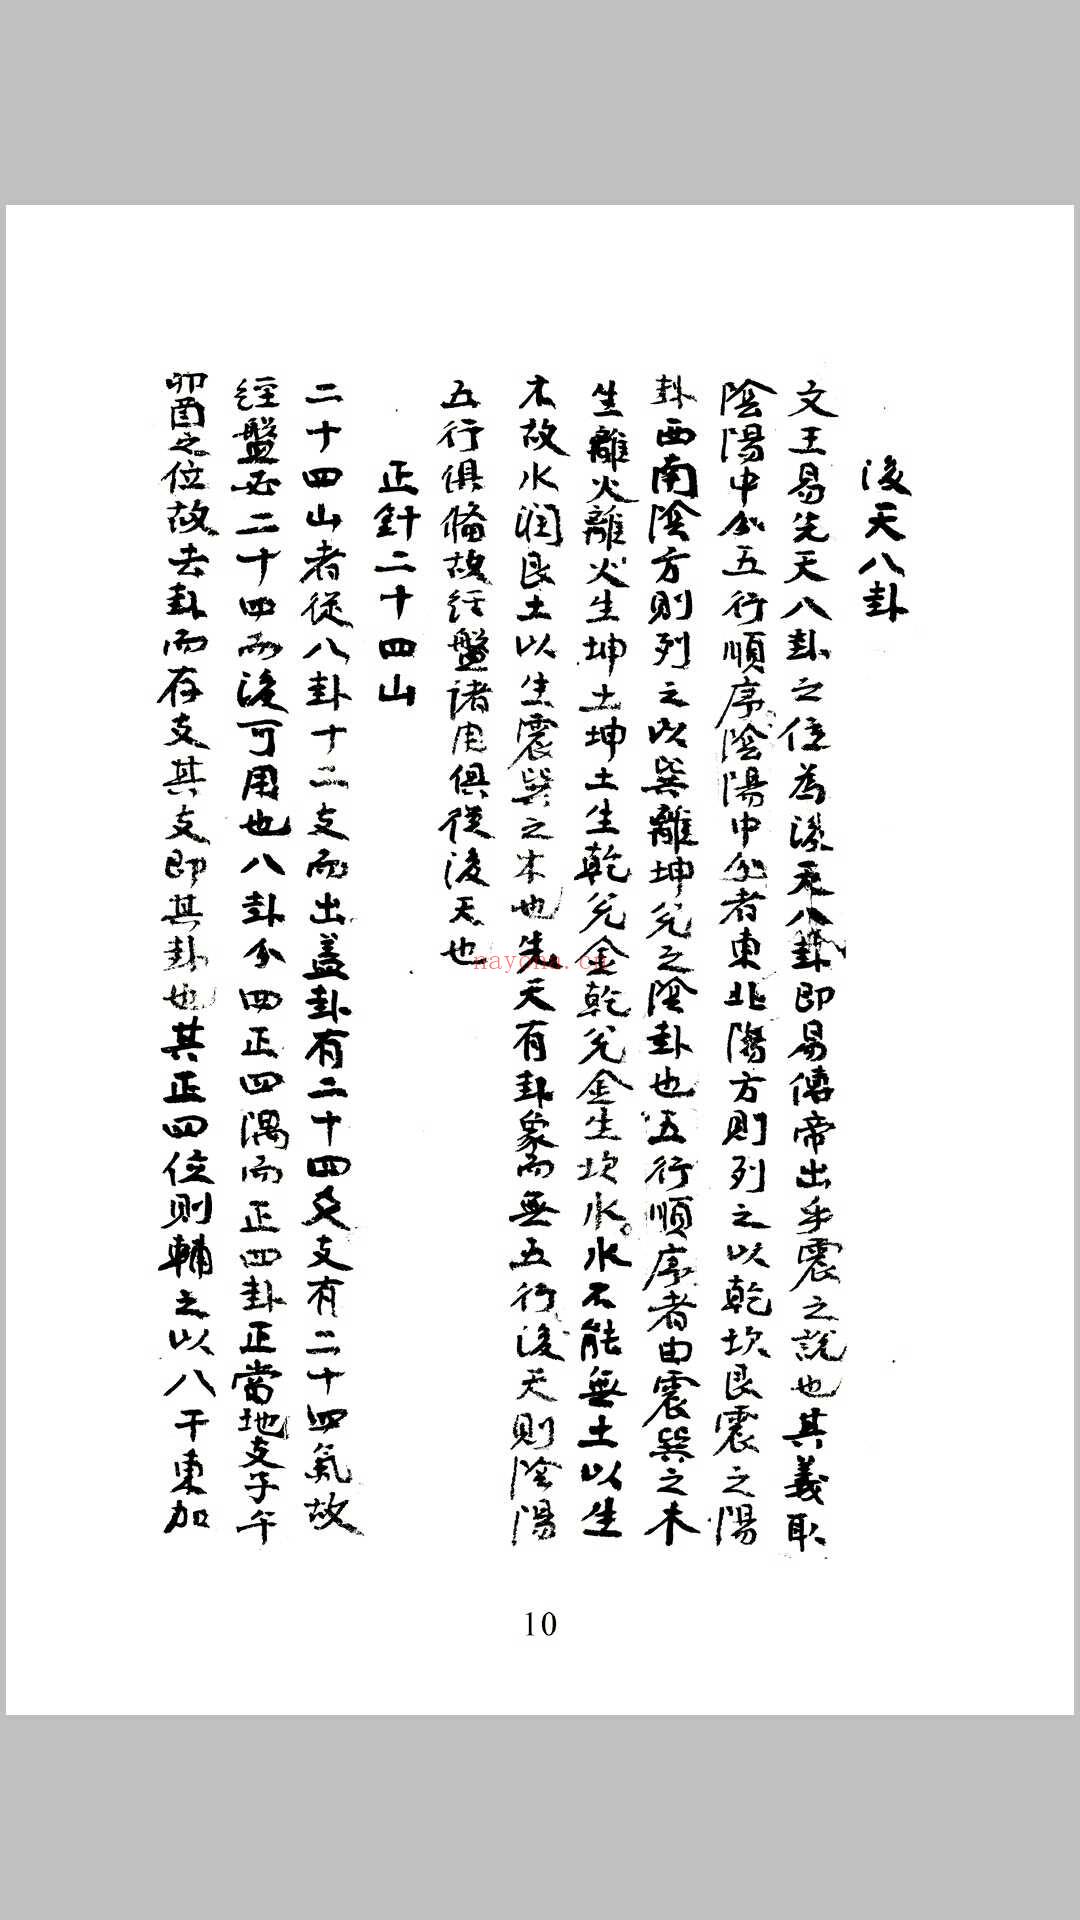 後天八卦
文王易先天八卦之位為後天八卦即易傳帝出乎震之説也其義取
陰陽中分五行順序陰陽中分者東北陽方則列之以乾坎艮震之陽
卦西南陰方則列之以巽離坤兌之陰卦也五行順序者由震巽之木
生離火離火生坤土坤土生乾兌金乾兌金生坎水水不能無土以生
木故水潤艮土以生震巽之木也先天有卦象而無五行後天則陰陽
五行俱備故經盤諸用俱從後天也
正針二十四山
二十四山者從八卦十二支而出蓋卦有二十四爻支有二十四氣故
經盤必二十四而後可用也八卦分四正四隅而正四卦正當地支子午
卯酉之位故去卦而存支其支即其卦也其正四位則輔之以八干東加
10
nayona.cn